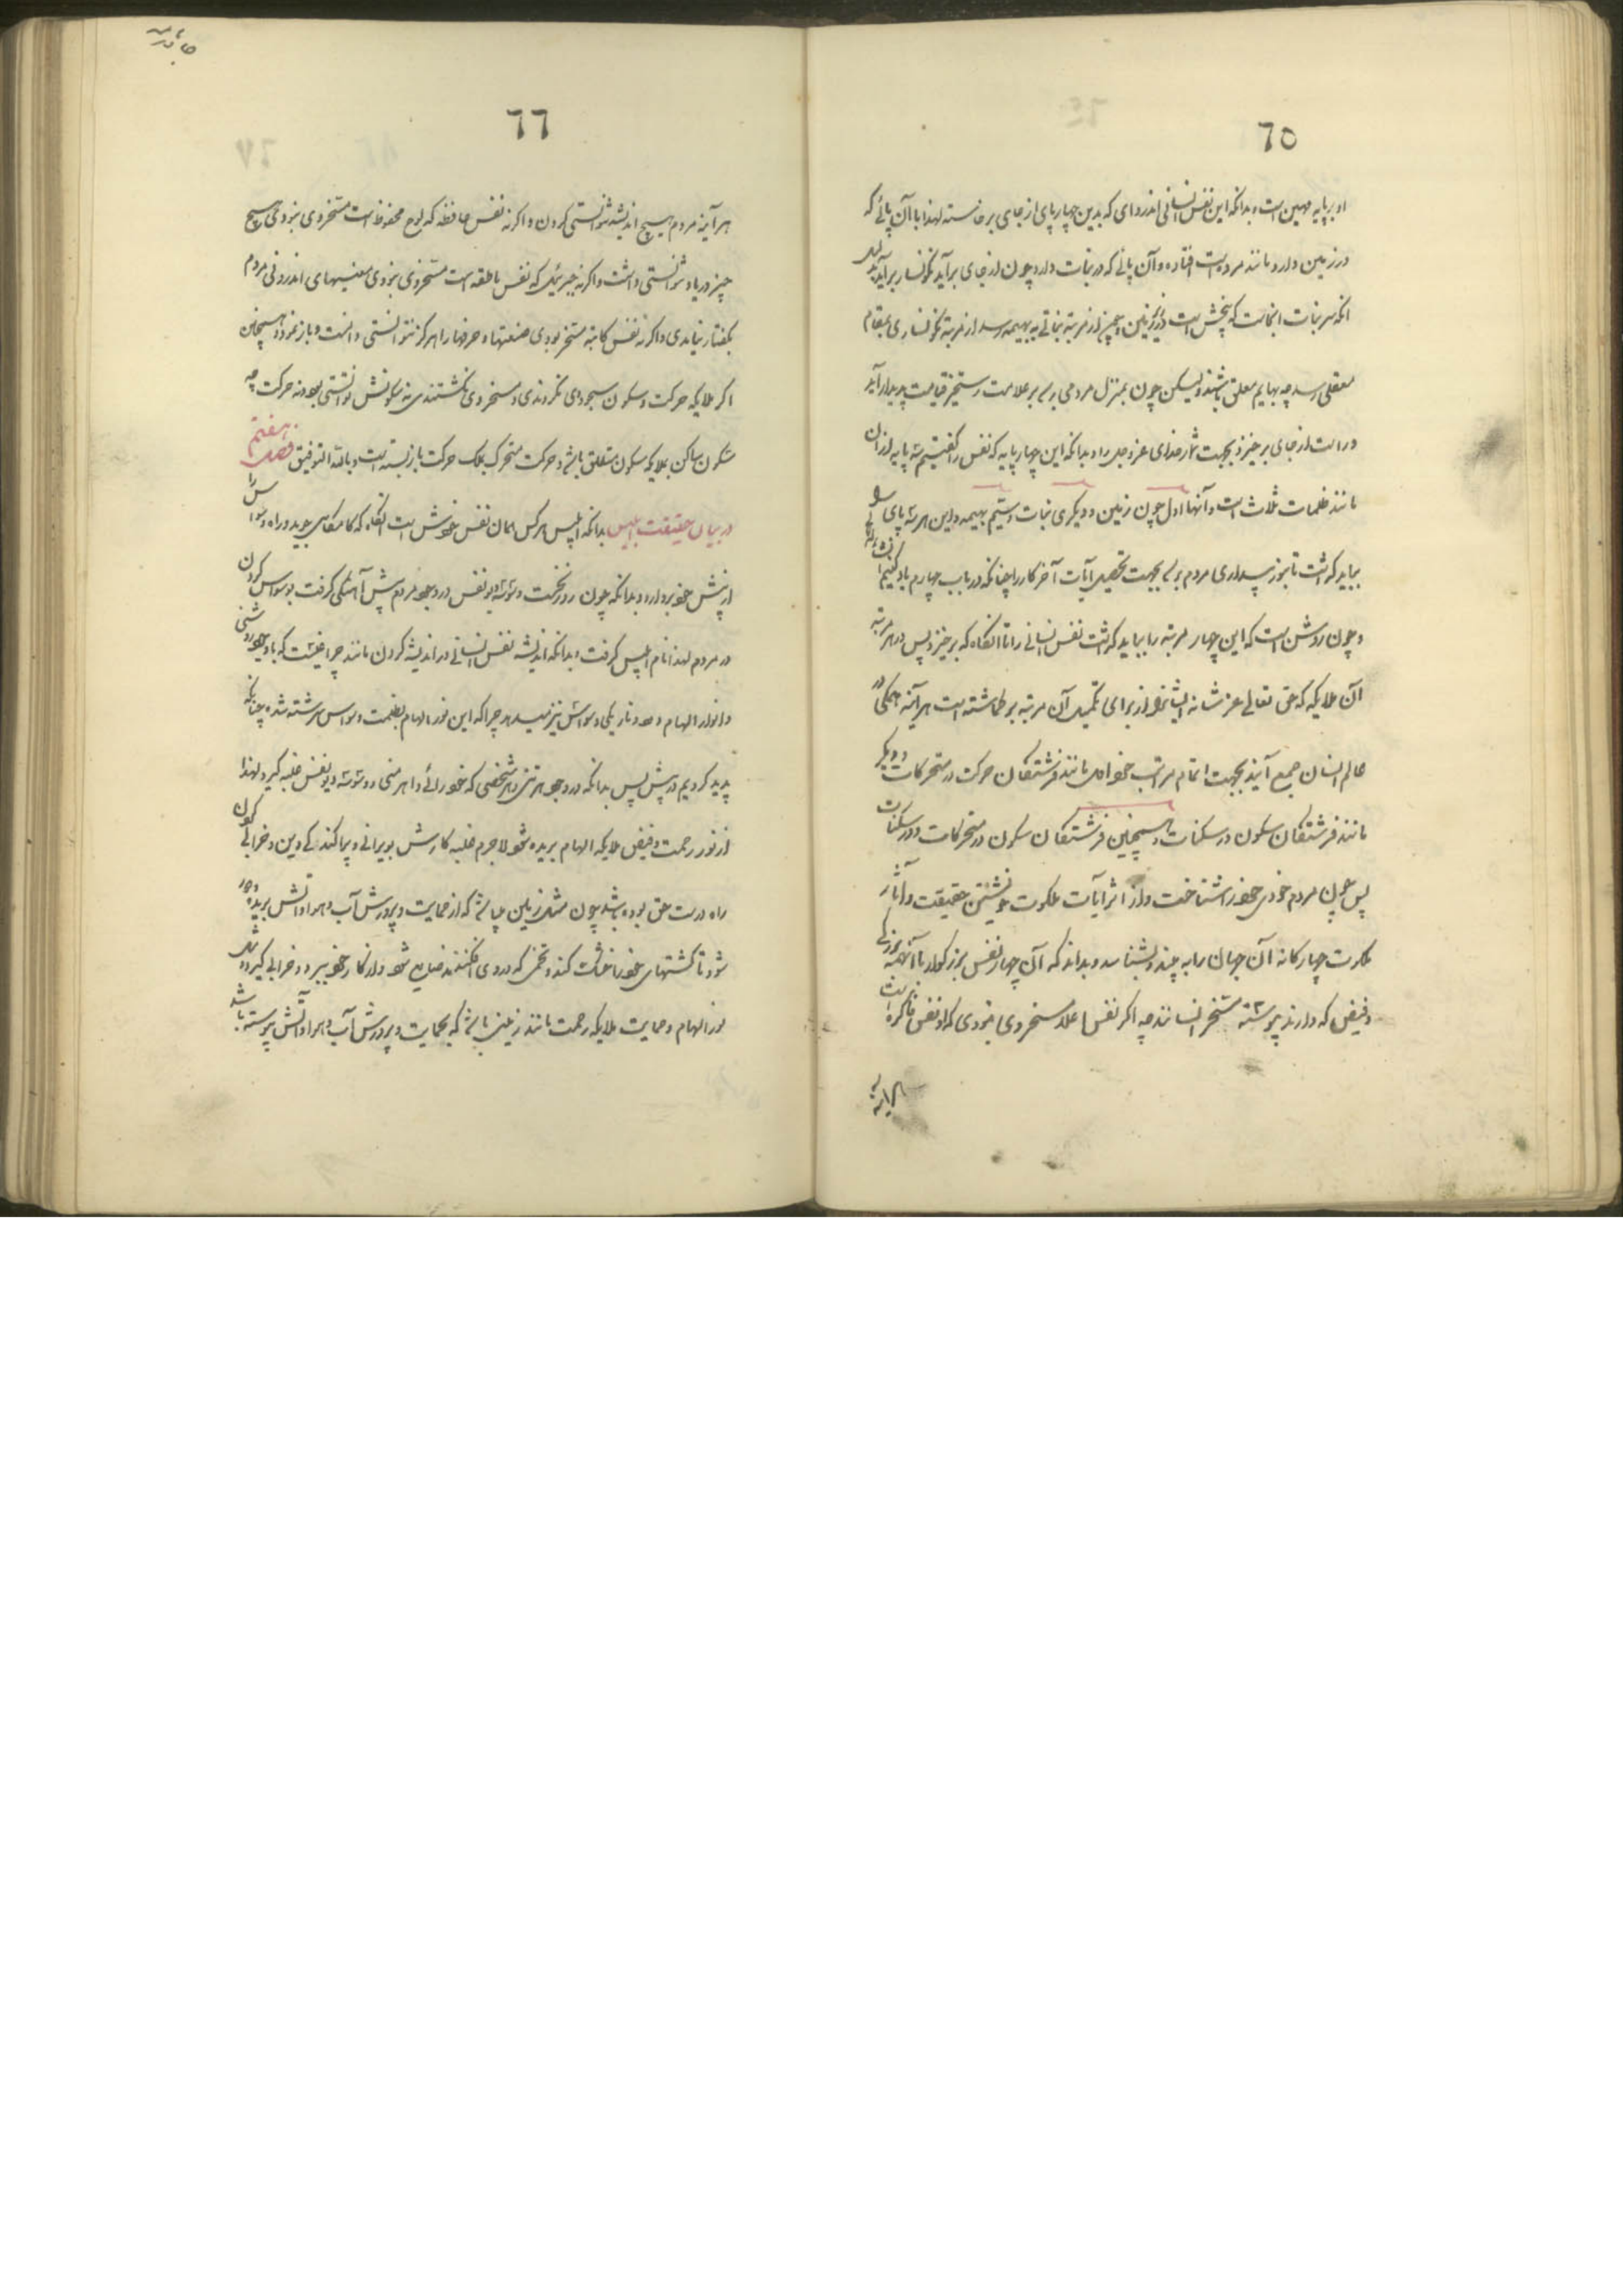 ٦٥
او بر پایه مهین است و بدانکه این نفس انسانی اندروای که بدین چهار پای از جای برخاسته لهذا با آن پائے که
در زمین دارد مانند مرده است افتاده و آن پائے که در نبات دارد چون از جای برآید نکونسار برآید
انکه سر نبات انجاست که بیخش است در زمین و چون از مرتبة نباتے به بهیمه رسد از مرتبه نکونساری بمقام
معلقی رسد چه بهایم معلق باشند ولیکن چون بمنزل مردمی رسد بر علامت رستخیز قیامت پدیدار آید
و راست از جای برخیزد بجهت شمار خدای عز و جل را و بدانکه این چهار پایه که نفس را گفتیم سه پایه از آن
مانند ظلمات ثلاث است و آنها اول چون زمین و دیکری نبات و سیم بهیمه و این هر سه پای
بباید گذاشت تا بروز پسداری مردم بجهت تحصیل آیات آخر کار را چنانکه در باب چهارم یاد کنیم
و چون روشن است که این چهار مرتبه را بباید گذاشت نفس انسانے را تا آنکاه که برخیزد پس در هر مرتبه
آن ملایکه که حق تعالے عز شانه ایشانرا از برای تکمیل آن مرتبه برکماشته است هر آینه همکی در
عالم انسان جمع آیند بجهت اتمام مراتب خواه مانند فرشتکان حرکت در متحرکات و دیکر
مانند فرشتکان سکون در سکنات و همچنین فرشتکان سکون در متحرکات و در سکنات
پس چون مردم خودی خود را شناخت و از اثر آیات ملکوت خویشتن حقیقت و آثار
ملکوت چهارکانه آن جهان را به چند و بشناسد و بداند که آن چهار نفس بزرکوار با آنهمه بزرکی
و فیض که دارند پیوسته مسخر انسانند چه اکر نفس اعلا مسخر وی نبودی که او نفس فاکره است
هر آینه
٦٦
هر آینه مردم هیچ اندیشه نتوانستی کردن و اکر نه نفس حافظه که لوح محفوظ است مسخر وی نبودی هیچ
چیز در یاد نتوانستی داشت و اکر نه جبرئیل که نفس ناطقه است مسخر وی نبودی معنیهای اندرونی مردم
بکفتار نیامدی و اکر نه نفس کاتبه مسخر بودی صنعتها و حرفها را هرکز نتوانستی دانست و باز نمود و همچنین
اکر ملایکه حرکت و سکون سجودی نکردندی و مسخر وی نکشتندی نه سکونش توانستی بود و نه حرکت چه
سکون ساکن بملایکه سکون متعلق باشد و حرکت متحرک بملک حرکت باز بسته است و بالله التوفیق فصل هفتم
در بیان حقیقت ابلیس بدانکه ابلیس هر کس همان نفس خودش است آنکاه که کامکاری جوید و راه وسواس را
از پیش خود بردارد و بدانکه چون روز نخست وسوسه دیو نفس در وجود مردم پیش آهنکی گرفت بوسواس کردن
در مردم لهذا نام ابلیس گرفت و بدانکه اندیشه نفس انسانے در اندیشه کردن مانند چراغیست که با وجود روشنی
و انوار الهام دود و تاریکی وسواس نیز میدهد چرا که این نور الهام بظلمت وسواس سرشته شده چنانکه
پدید کردیم در پیش پس بدانکه در وجود هر تنی و هر شخصی که خودرائے و اهرمنی و وسوسه دیو نفس غلبه کیرد لهذا
از نور رحمت و فیض ملایکه الهام بریده شود لاجرم غلبه کارش بویرانے و پراکندکے دین و خرابے کون
راه درست حق بوده باشد چون مثل زمین که از حمایت و پرورش آب و هوا و آتش بریده و دور
شود تا کشتهای خود را خاشت کند و تخمی که در وی افکنند ضایع شود و از کار خود ببرد و خرابی کیرد
نور الهام و حمایت ملایکه رحمت مانند زمینی باشد که بحمایت و پرورش آب و هوا و آتش پیوسته باشد